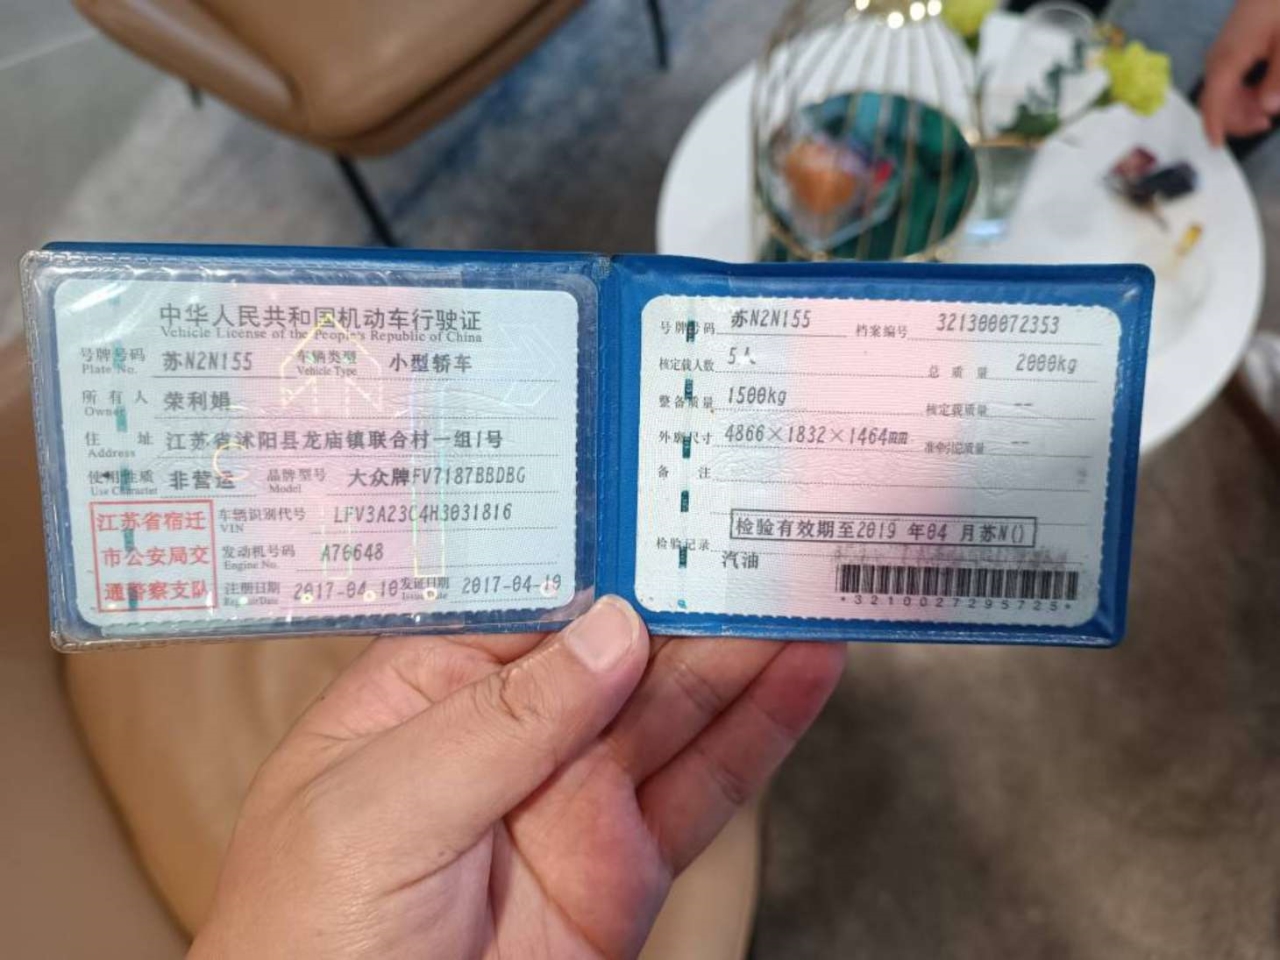 中华人民共和国机动车行驶证
Vehicle License of the People's Republic of China
号牌号码 苏N2N155 车辆类型 小型轿车
Plate No. Vehicle Type
所有人 荣利娟
Owner
住址 江苏省沭阳县龙庙镇联合村一组1号
Address
使用性质 非营运 品牌型号 大众牌FV7187BBDBG
Use Character Model
江苏省宿迁
市公安局交
通警察支队
车辆识别代号 LFV3A23C4H3031816
VIN
发动机号码 A76648
Engine No.
注册日期 2017-04-10 发证日期 2017-04-10
Register Date Issue Date
号牌号码 苏N2N155 档案编号 321300072353
核定载人数 5人 总质量 2000kg
整备质量 1500kg 核定载质量 --
外廓尺寸 4866×1832×1464mm 准牵引总质量 --
备注
检验记录 检验有效期至2019年04月苏N()
汽油
*3210027295725*